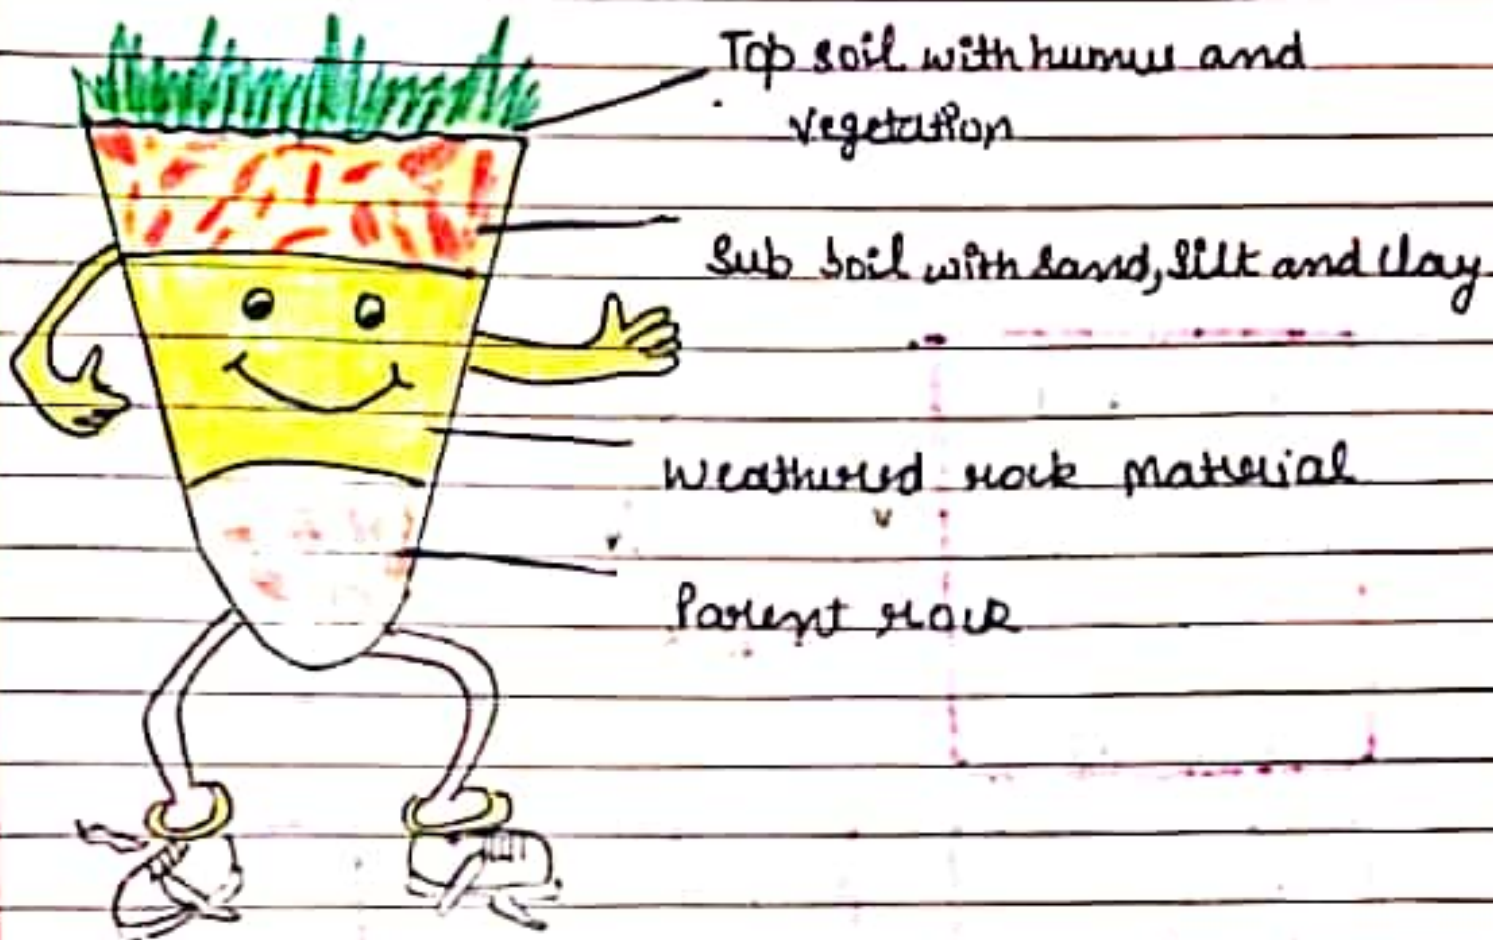 Top soil with humus and
vegetation
Sub soil with sand, silt and clay
Weathered rock material
Parent rock